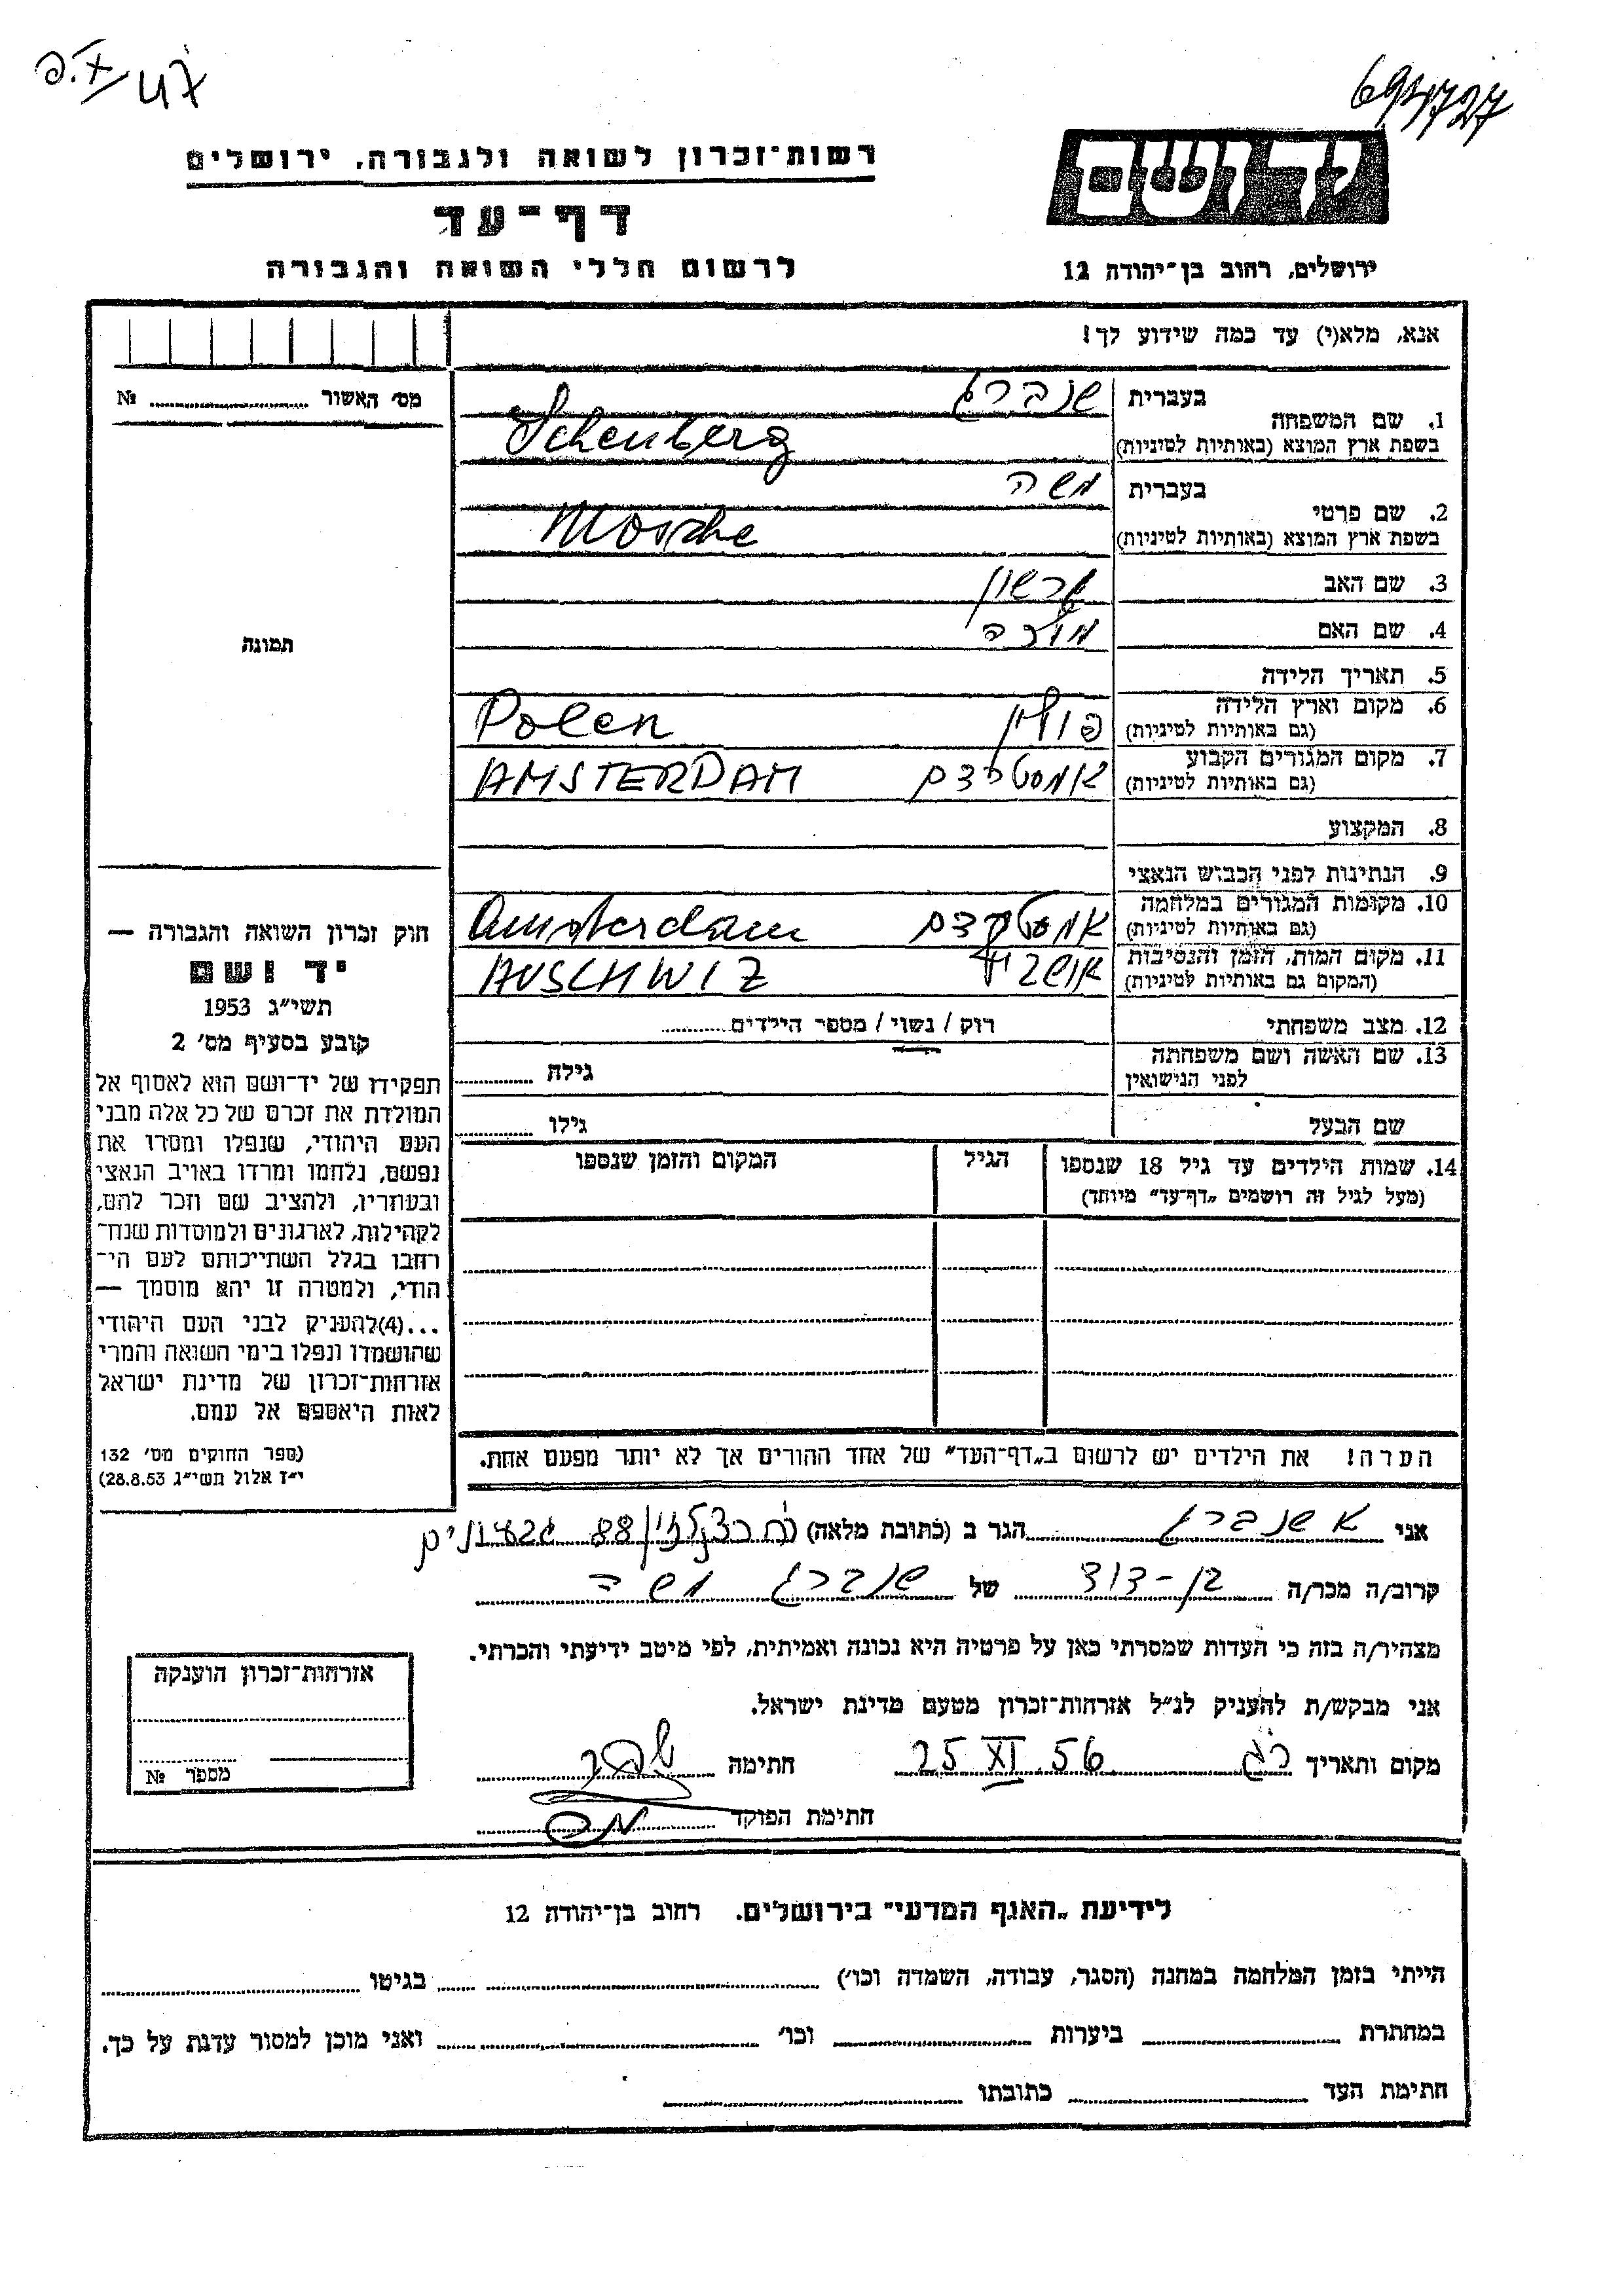 47
694727
רשות־זכרון לשואה ולגבורה, ירושלים
יד ושם
דף־עד
לרשום חללי השואה והגבורה
ירושלים, רחוב בן־יהודה 12
אנא, מלא(י) עד כמה שידוע לך!
מס׳ האשור № ........
1. שם המשפחה
בעברית שנברג
בשפת ארץ המוצא (באותיות לטיניות) Schenberg
2. שם פרטי
בעברית משה
בשפת ארץ המוצא (באותיות לטיניות) Mosche
3. שם האב גרשון
4. שם האם
תמונה
5. תאריך הלידה
6. מקום וארץ הלידה
(גם באותיות לטיניות) פולין Polen
7. מקום המגורים הקבוע
(גם באותיות לטיניות) אמסטרדם AMSTERDAM
8. המקצוע
9. הנתינות לפני הכבוש הנאצי
10. מקומות המגורים במלחמה
(גם באותיות לטיניות) אמסטרדם Amsterdam
11. מקום המות, הזמן והנסיבות
(המקום גם באותיות לטיניות) אושביץ AUSCHWIZ
12. מצב משפחתי רווק / נשוי / מספר הילדים........
13. שם האשה ושם משפחתה
לפני הנישואין גילה ........
שם הבעל גילו ........
14. שמות הילדים עד גיל 18 שנספו
(מעל לגיל זה רושמים „דף־עד” מיוחד)
הגיל
המקום והזמן שנספו
חוק זכרון השואה והגבורה —
יד ושם
תשי״ג 1953
קובע בסעיף מס׳ 2
תפקידו של יד־ושם הוא לאסוף אל
המולדת את זכרם של כל אלה מבני
העם היהודי, שנפלו ומסרו את
נפשם, נלחמו ומרדו באויב הנאצי
ובעוזריו, ולהציב שם וזכר להם,
לקהילות, לארגונים ולמוסדות שנח־
רחבו בגלל השתייכותם לעם הי־
הודי, ולמטרה זו יהא מוסמך —
...(4)להעניק לבני העם היהודי
שהושמדו ונפלו בימי השואה והמרי
אזרחות־זכרון של מדינת ישראל
לאות היאספם אל עמם.
(ספר החוקים מס׳ 132
י״ז אלול תשי״ג 28.8.53)
הערה! את הילדים יש לרשום ב„דף־העד” של אחד ההורים אך לא יותר מפעם אחת.
אני א שנברג הגר ב (כתובת מלאה) 88 גבעתיים
קרוב/ה מכר/ה בן-דוד של שנברג משה
מצהיר/ה בזה כי העדות שמסרתי כאן על פרטיה היא נכונה ואמיתית, לפי מיטב ידיעתי והכרתי.
אני מבקש/ת להעניק לנ״ל אזרחות־זכרון מטעם מדינת ישראל.
מקום ותאריך רג 25 XI 56 חתימה
חתימת הפוקד
אזרחות־זכרון הוענקה
מספר №
לידיעת „האגף המדעי” בירושלים. רחוב בן־יהודה 12
הייתי בזמן המלחמה במחנה (הסגר, עבודה, השמדה וכו׳) ........ בגיטו ........
במחתרת ........ ביערות ........ וכו׳ ........ ואני מוכן למסור עדות על כך.
חתימת העד ........ כתובתו ........